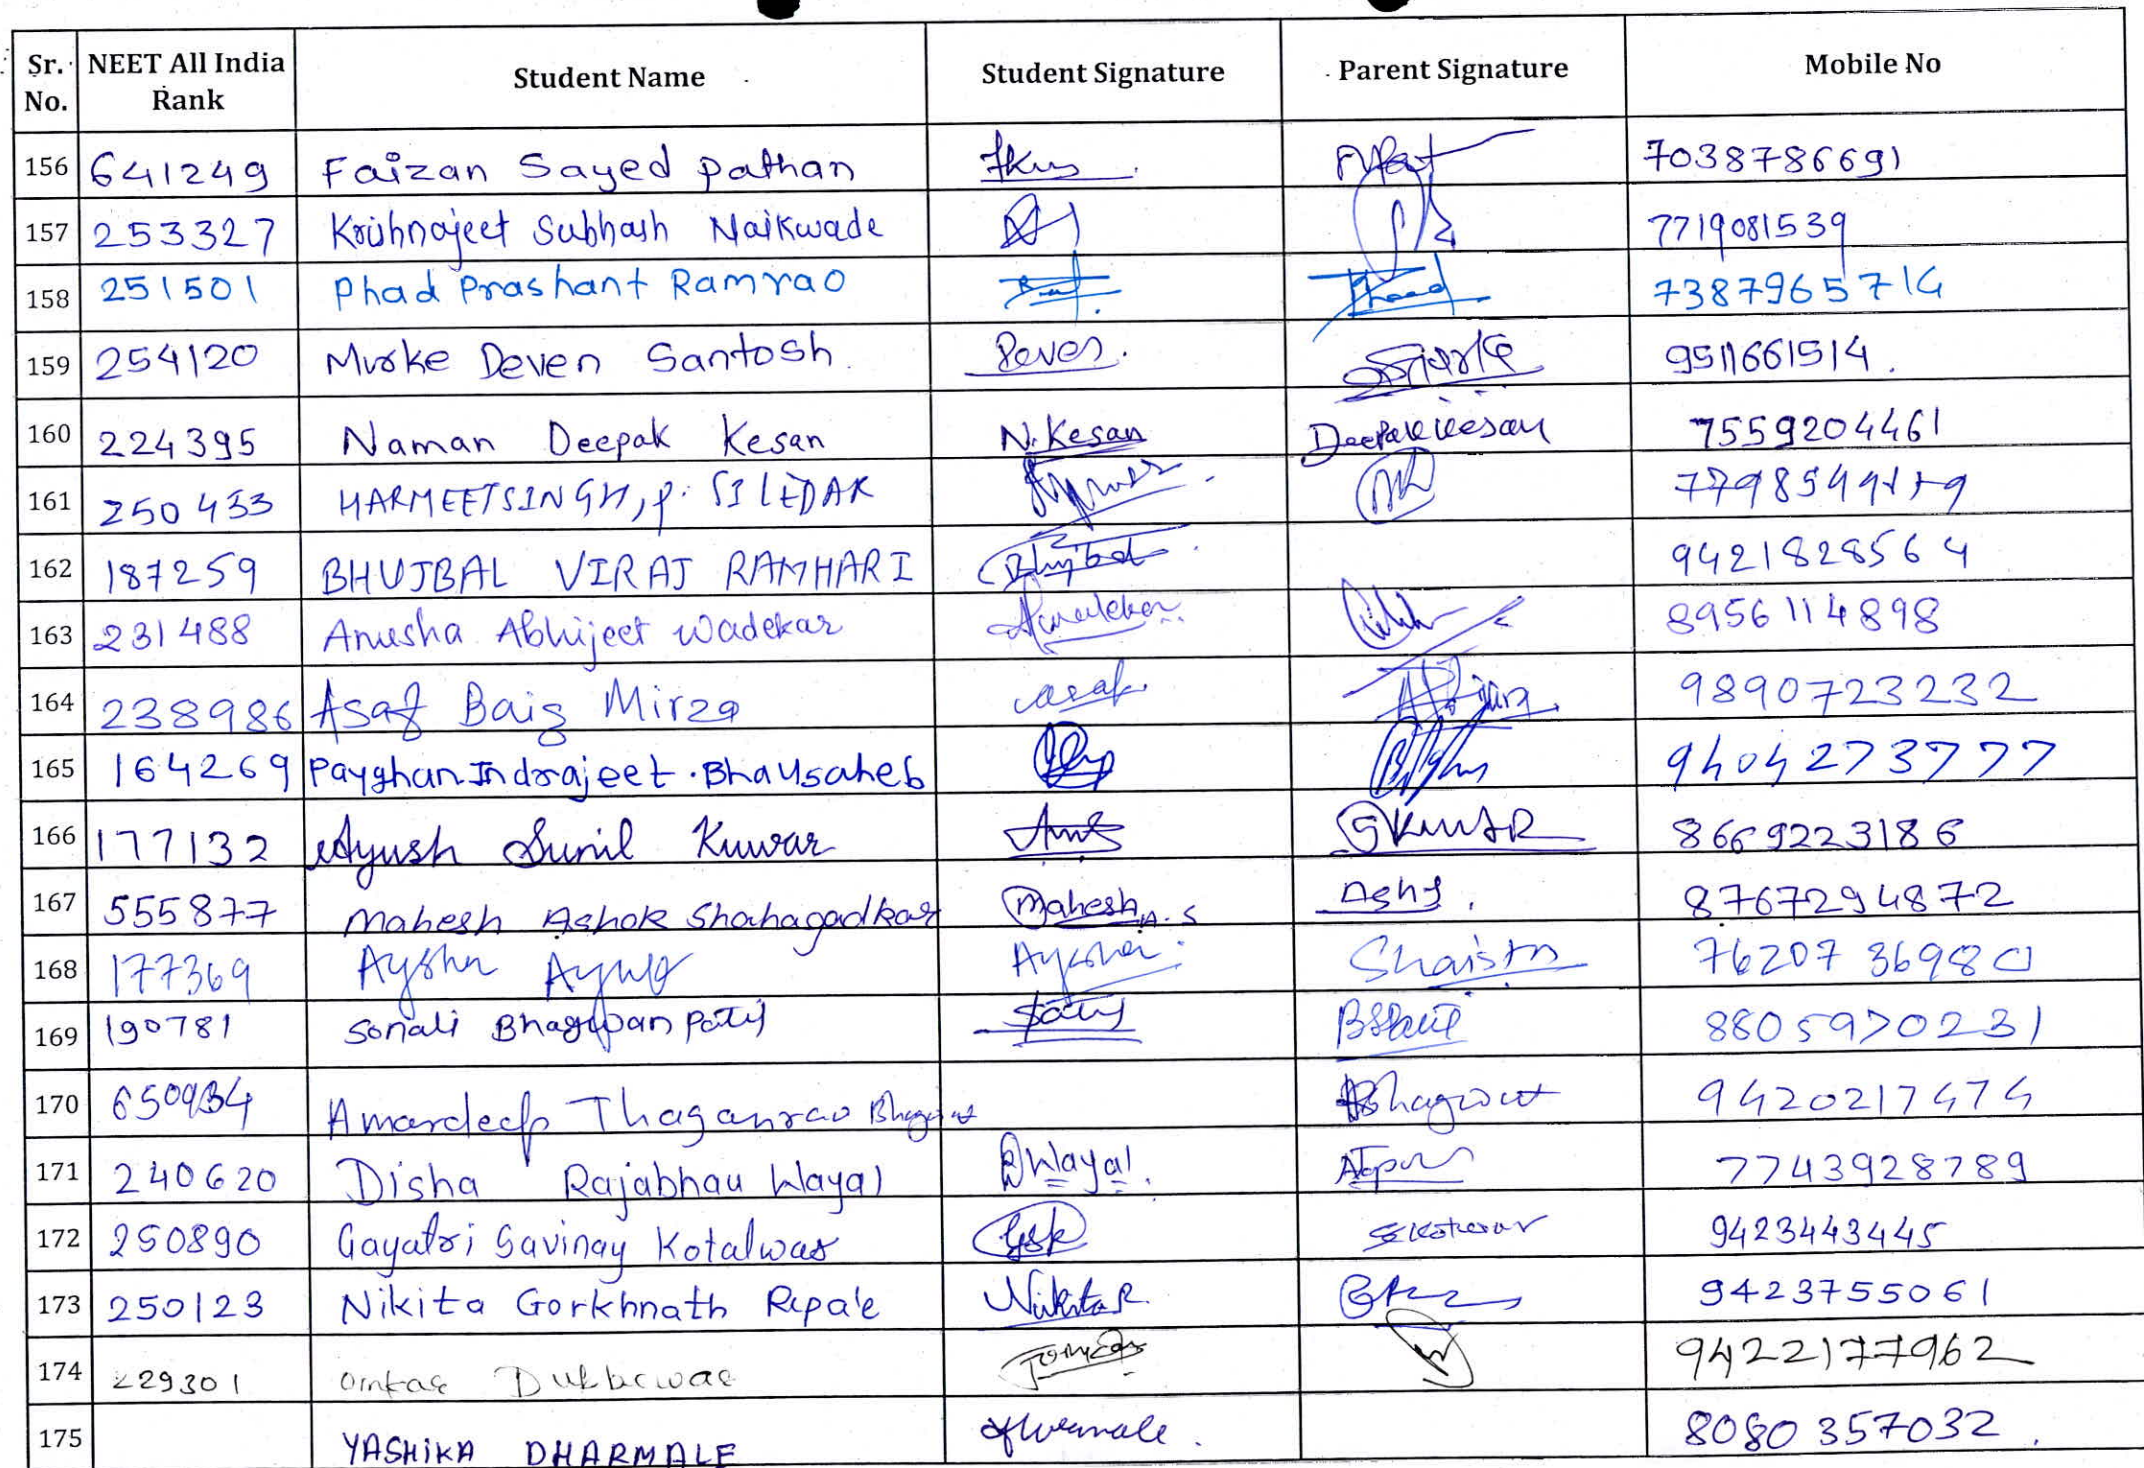 Sr. No. NEET All India Rank Student Name Student Signature Parent Signature Mobile No
156 641249 Faizan Sayed Pathan 7038786691
157 253327 Krishnajeet Subhash Naikwade 7719081539
158 251501 Phad Prashant Ramrao 7387965714
159 254120 Murke Deven Santosh Deven. 9511661514.
160 224395 Naman Deepak Kesan N. Kesan Deepak Kesan 7559204461
161 250433 HARMEETSINGH, P. SILEDAR
162 187259 BHUJBAL VIRAJ RAMHARI Bhujbal 9421828564
163 231488 Anusha Abhijeet Wadekar 8956114898
164 238986 Asaf Baig Mirza asaf 9890723232
165 164269 Payghan Indrajeet. Bhausaheb 9404273777
166 177132 Ayush Sunil Kuwar 8669223186
167 555877 Mahesh Ashok Shahagadkar Mahesh A. S 8767294872
168 177369 Aysha Ayub Aysha Shaista 7620736980
169 190781 Sonali Bhagwan Patil BSPatil 8805970231
170 Amardeep Thaganrao Bhagwat Bhagwat 9420217474
171 240620 Disha Rajabhau Wayal D Wayal. 7743928789
172 250890 Gayatri Savinay Kotalwar GSK 9423443445
173 250123 Nikita Gorkhnath Repale Nikita R. 9423755061
174 229301 Omkar 9422177962
175 YASHIKA DHARMALE 8080357032.